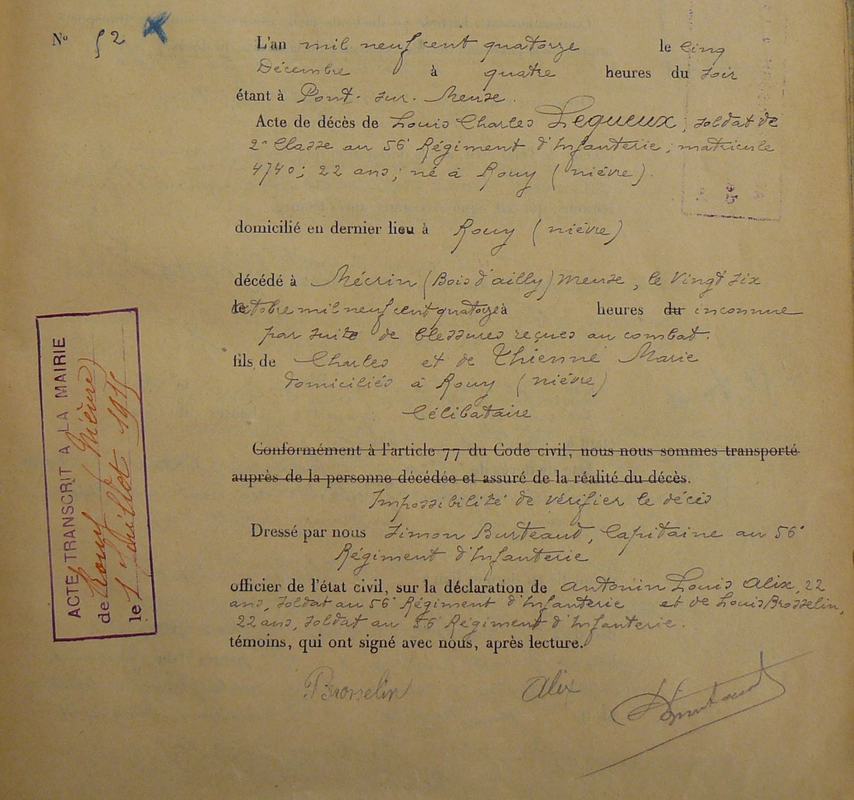 N° 52
L'an mil neuf cent quatorze le cinq
Décembre à quatre heures du soir
étant à Pont-sur-Meuse.
Acte de décès de Louis Charles Lequeux, soldat de
2e Classe au 56e Régiment d'Infanterie; matricule
4740; 22 ans; né à Rouy (nièvre).
domicilié en dernier lieu à Rouy (nièvre)
décédé à Mécrin (Bois d'ailly) Meuse, le vingt six
octobre mil neuf cent quatorze à heures du inconnue
par suite de blessures reçues au combat.
fils de Charles et de Thienne Marie
domiciliés à Rouy (nièvre)
Célibataire
Conformément à l'article 77 du Code civil, nous nous sommes transporté
auprès de la personne décédée et assuré de la réalité du décès.
Impossibilité de vérifier le décès
Dressé par nous Simon Burteaud, Capitaine au 56e
Régiment d'Infanterie
officier de l'état civil, sur la déclaration de Antonin Louis Alix, 22
ans, soldat au 56e Régiment d'Infanterie et de Louis Brosselin,
22 ans, soldat au 56e Régiment d'Infanterie.
témoins, qui ont signé avec nous, après lecture.
Brosselin Alix
ACTE TRANSCRIT A LA MAIRIE
de Rouy (Nièvre)
le 1 Juillet 1915